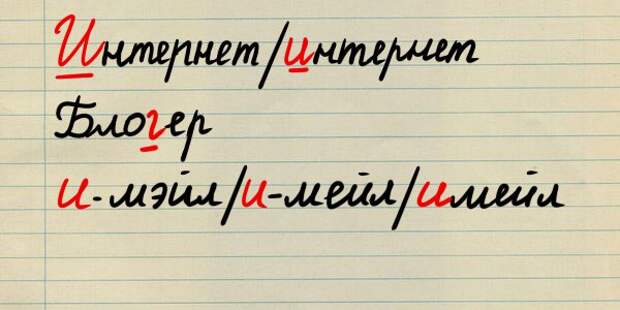 Интернет/интернет
Блогер
и-мэйл/и-мейл/имейл